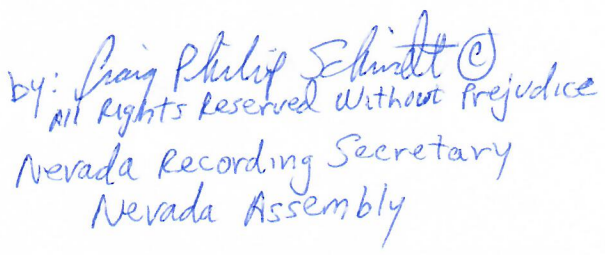 by: Craig Philip Schmidt ©
All Rights Reserved Without Prejudice
Nevada Recording Secretary
Nevada Assembly